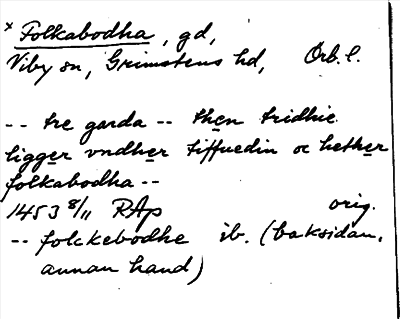 × Folkabodha, gd,
Viby sn, Grimstens hd, Örb. l.
-- tre garda -- then tridhie
ligger vndher tiffuedin oc hether
folkabodha --
1453 8/11 RAp orig.
-- folckebodhe ib. (baksidan,
annan hand)